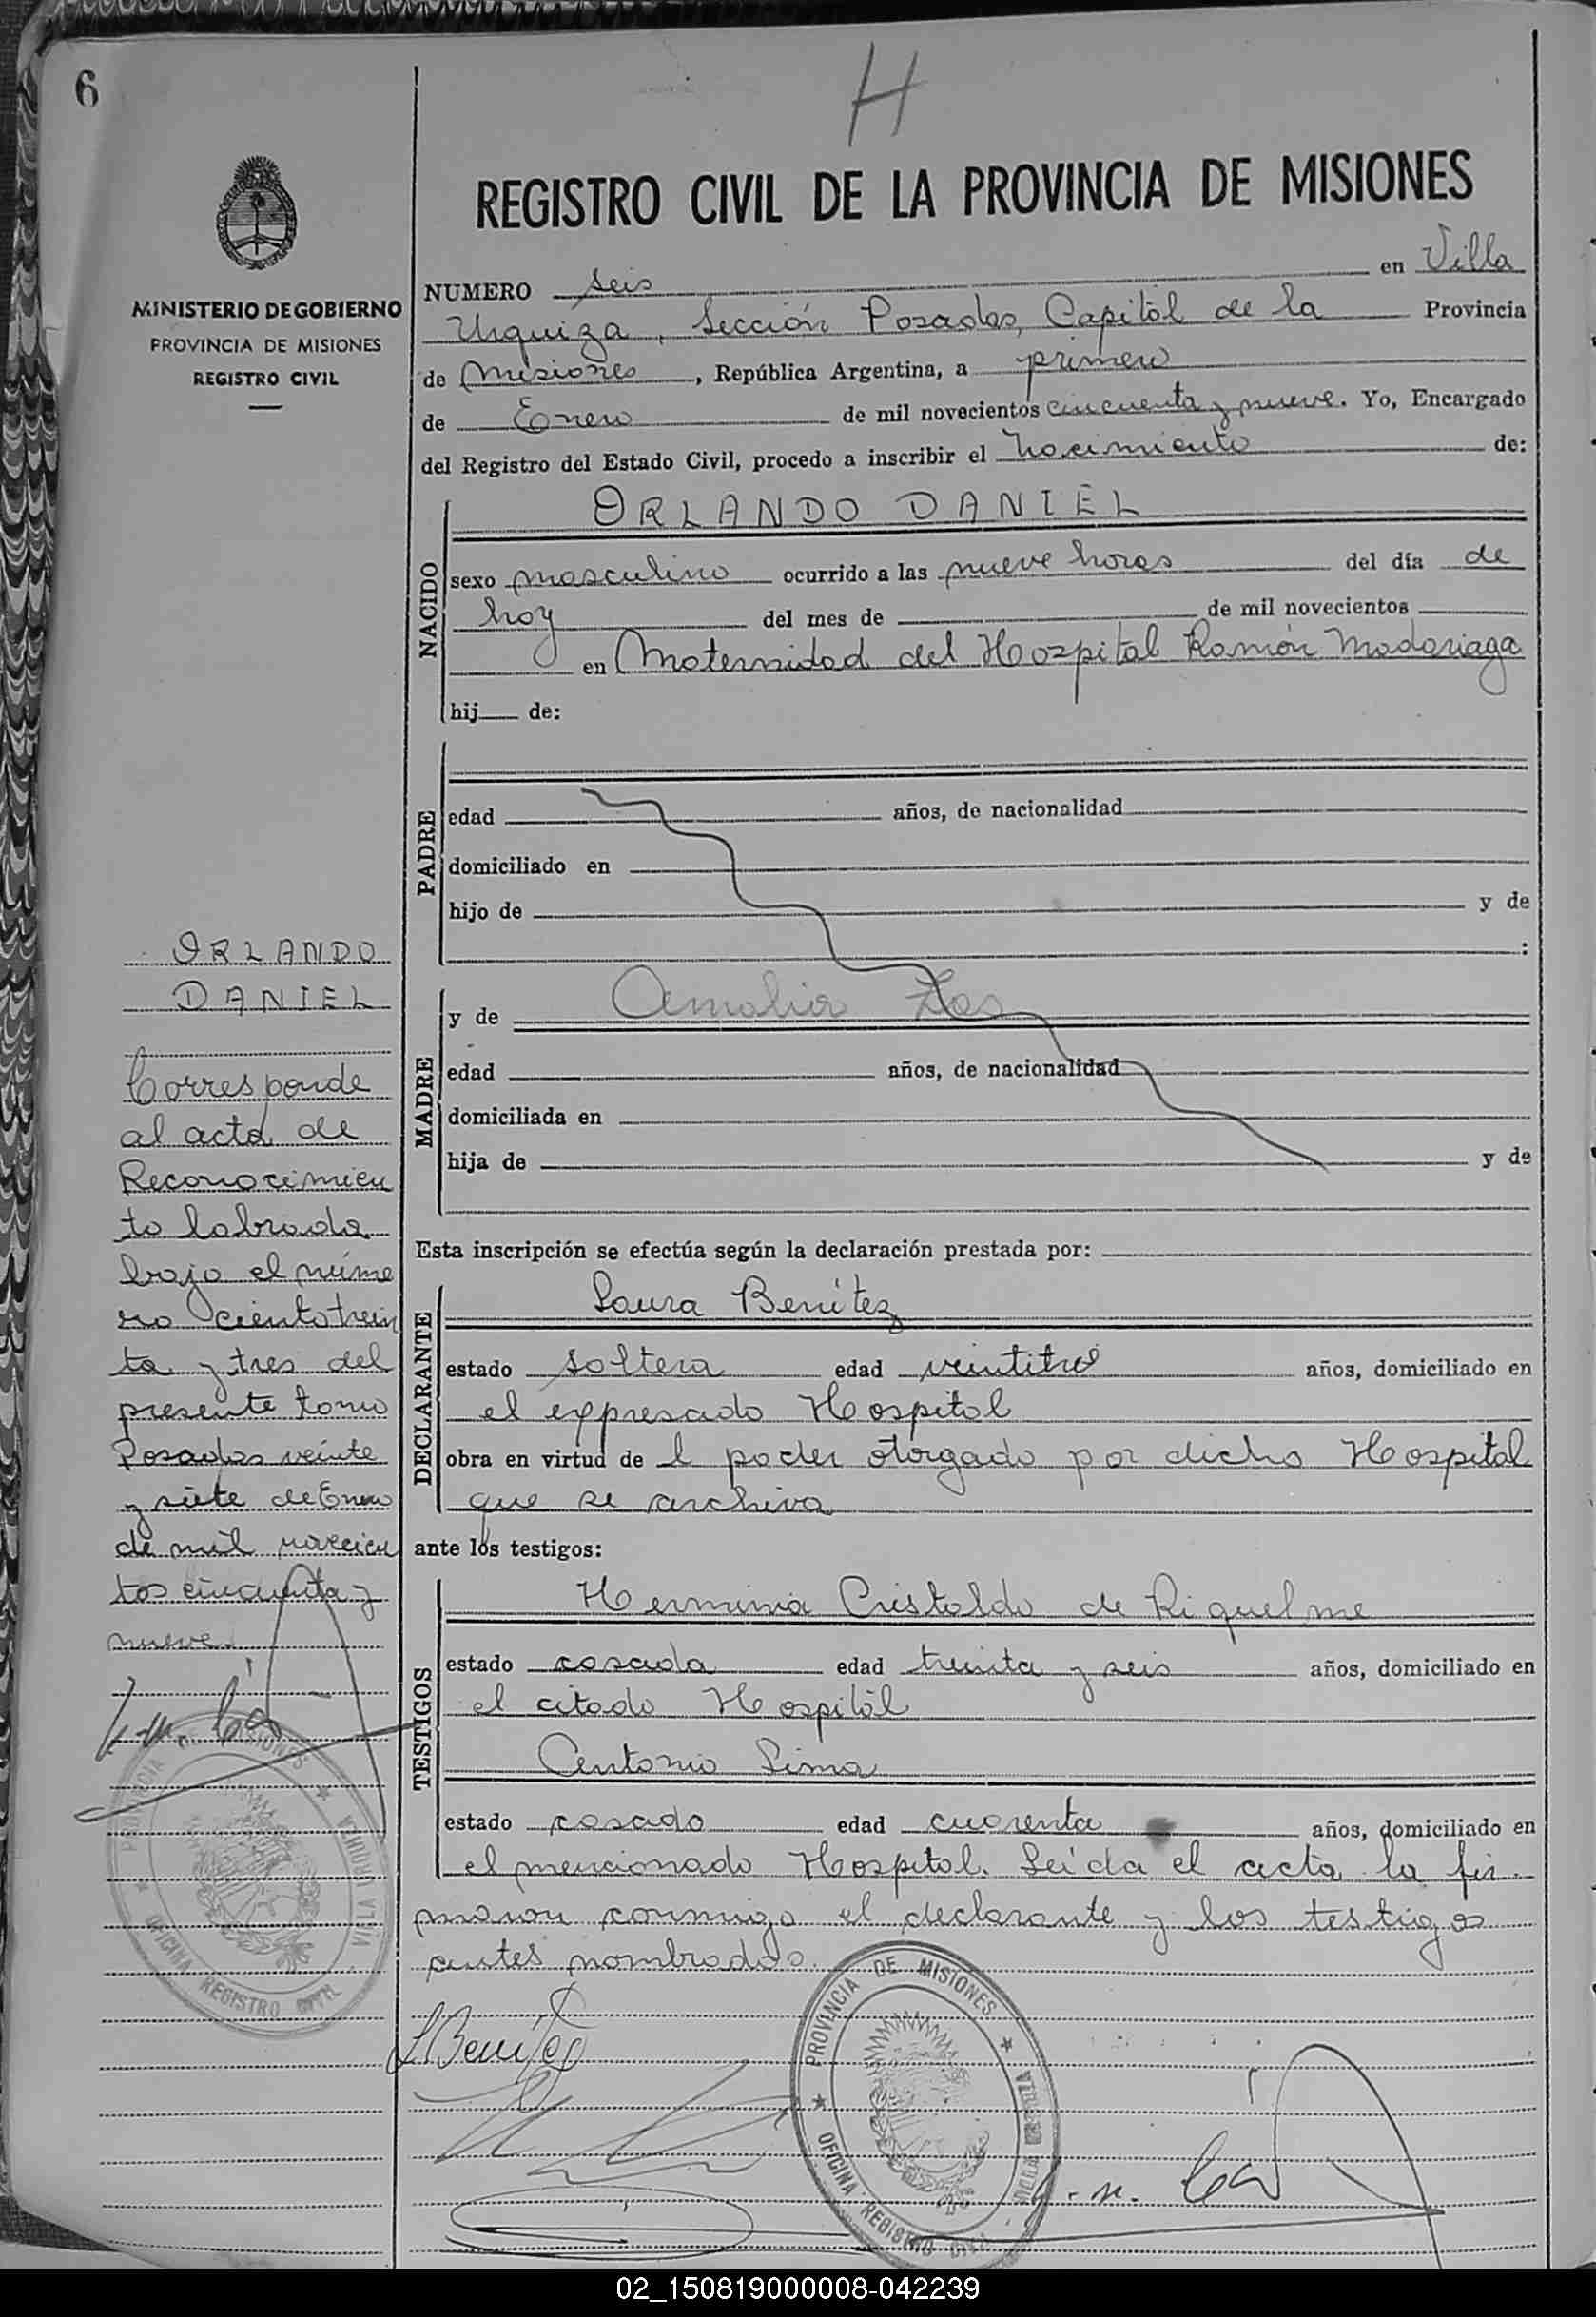 6
H
REGISTRO CIVIL DE LA PROVINCIA DE MISIONES
MINISTERIO DE GOBIERNO
PROVINCIA DE MISIONES
REGISTRO CIVIL
NUMERO seis en Villa
Urquiza, Sección Posadas, Capital de la Provincia
de Misiones, República Argentina, a primero
de Enero de mil novecientos cincuenta y nueve. Yo, Encargado
del Registro del Estado Civil, procedo a inscribir el nacimiento de:
NACIDO
ORLANDO DANIEL
sexo masculino ocurrido a las nueve horas del día de
hoy del mes de de mil novecientos
en Maternidad del Hospital Ramón Madariaga
hij de:
PADRE
edad años, de nacionalidad
domiciliado en
hijo de y de
:
MADRE
y de Amalia
edad años, de nacionalidad
domiciliada en
hija de y de
Esta inscripción se efectúa según la declaración prestada por:
DECLARANTE
Laura Benítez
estado soltera edad veintitres años, domiciliado en
el expresado Hospital
obra en virtud de l poder otorgado por dicho Hospital
que se archiva
ante los testigos:
TESTIGOS
Herminia Cristaldo de Riquelme
estado casada edad treinta y seis años, domiciliado en
el citado Hospital
Antonio Lima
estado casado edad cuarenta años, domiciliado en
el mencionado Hospital. Leída el acta la fir-
maron conmigo el declarante y los testigos
antes nombrados.
L Benítez
PROVINCIA DE MISIONES
OFICINA REGISTRO CIVIL
VILLA URQUIZA
ORLANDO
DANIEL
Corresponde
al acta de
Reconocimien
to labrada
bajo el núme
ro ciento trein
ta y tres del
presente tomo
Posadas veinte
y siete de Enero
de mil novecien
tos cincuenta y
nueve.
PROVINCIA DE MISIONES
OFICINA REGISTRO CIVIL
VILLA URQUIZA
02_150819000008-042239